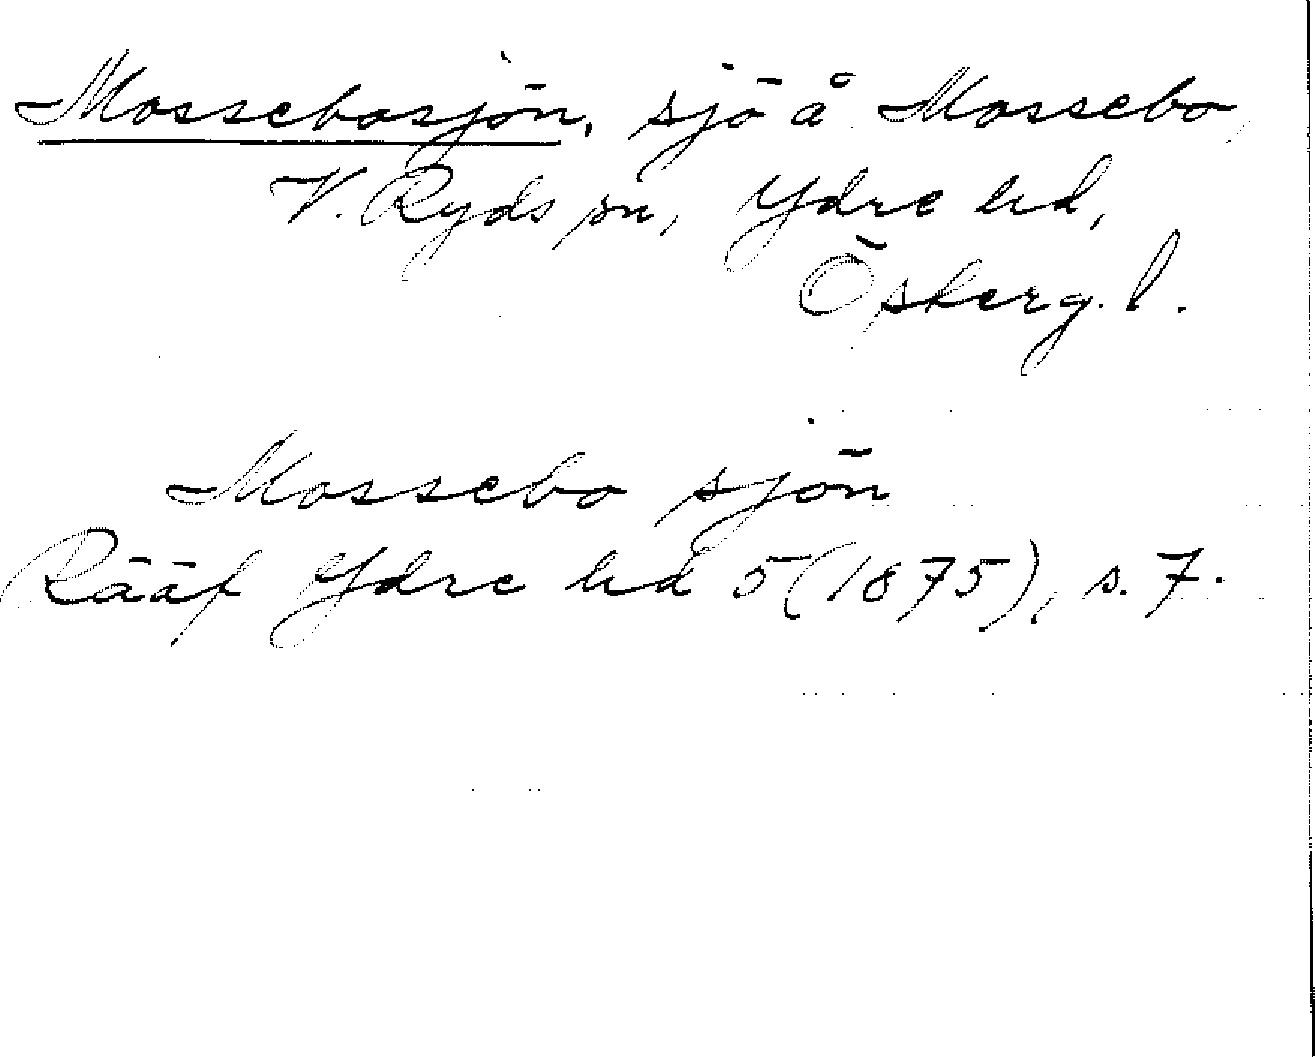 Mossebosjön, sjö å Mossebo,
V. Ryds sn, Ydre hd,
Österg. l.
Mossebo sjön
Rääf Ydre hd 5 (1875), s. 7.